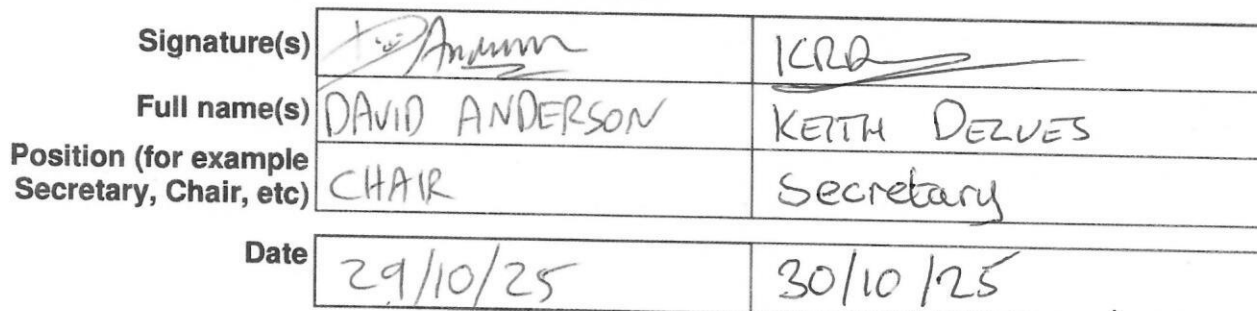 Signature(s) D Anderson KRD
Full name(s) DAVID ANDERSON KEITH DELVES
Position (for example
Secretary, Chair, etc) CHAIR Secretary
Date 29/10/25 30/10/25